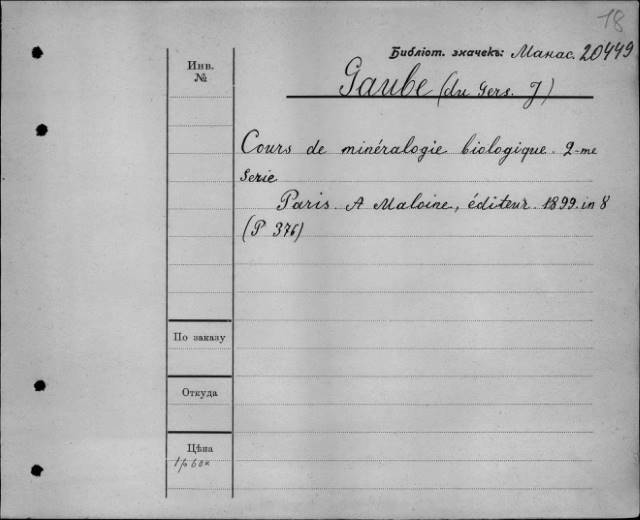 18
Библіот. значекъ: Манас. 20449
Инв. №
Gaube (du Gers. J)
Cours de minéralogie biologique. 2-me
Serie
Paris. A Maloine, éditeur. 1899. in 8
(P 376)
По заказу
Откуда
Цѣна